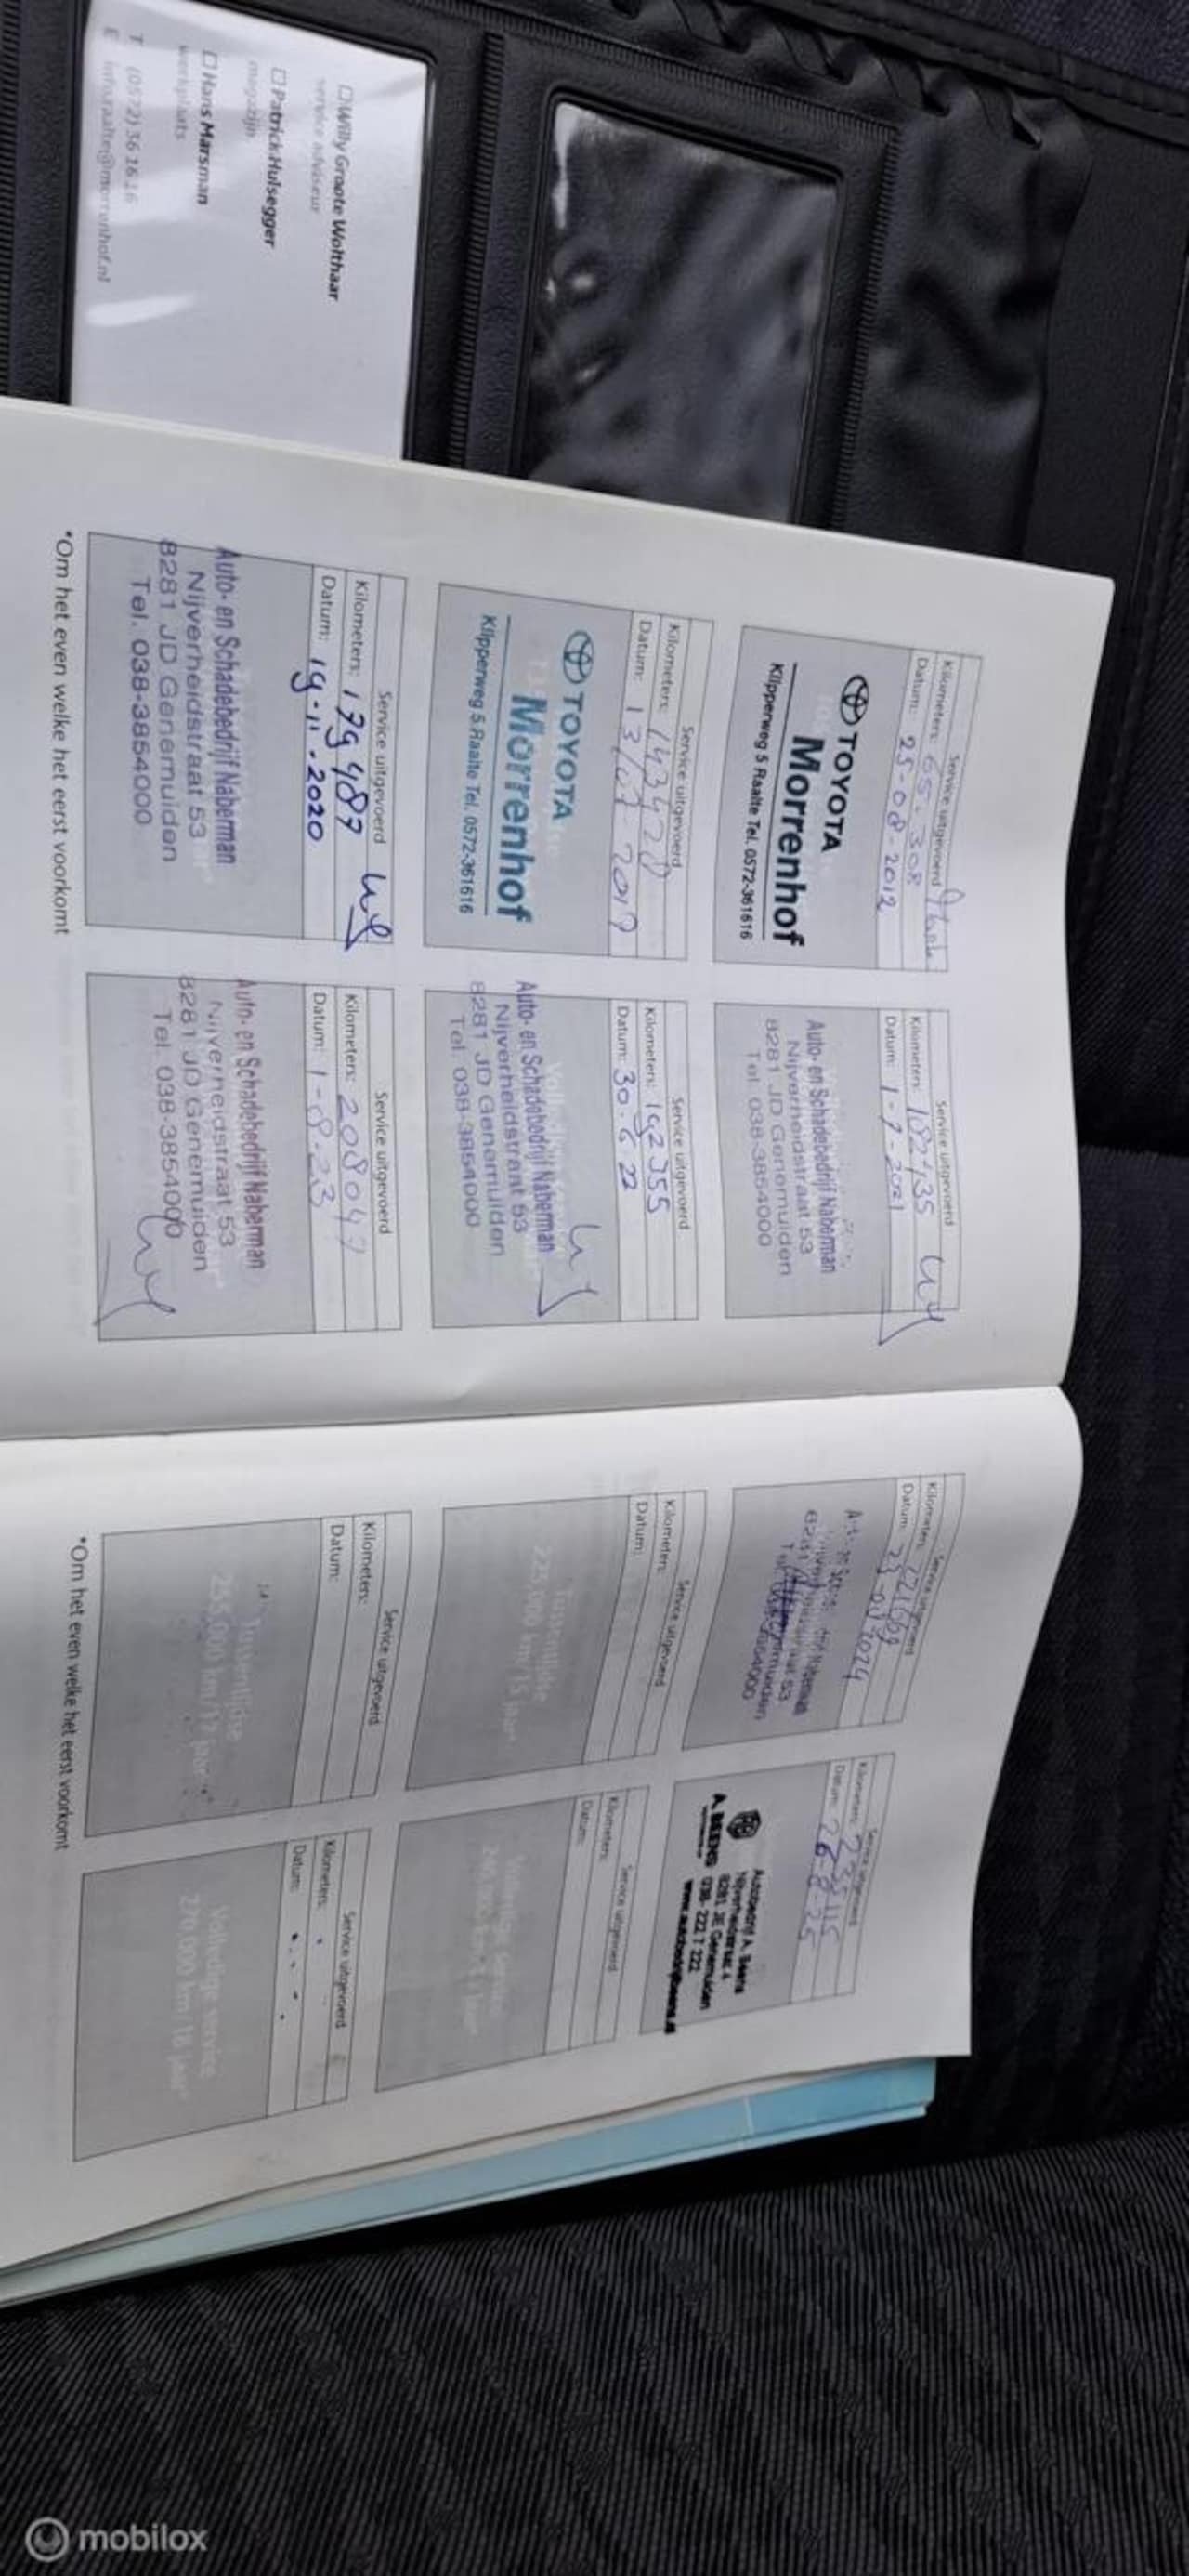 ☐ Willy Groote Wolthaar
service adviseur
☐ Patrick Hulsegger
magazijn
☐ Hans Marsman
werkplaats
T (0572) 36 16 16
E info.raalte@morrenhof.nl
Service uitgevoerd
Kilometers: 65.308
Datum: 25-08-2012
TOYOTA
Morrenhof
Klipperweg 5 Raalte Tel. 0572-361616
Service uitgevoerd
Kilometers: 143420
Datum: 13/07 2017
TOYOTA
Morrenhof
Klipperweg 5 Raalte Tel. 0572-361616
Service uitgevoerd
Kilometers: 179487
Datum: 19-11-2020
Auto- en Schadebedrijf Naberman
Nijverheidstraat 53
8281 JD Genemuiden
Tel. 038-3854000
Service uitgevoerd
Kilometers: 182435
Datum: 1-7-2021
Auto- en Schadebedrijf Naberman
Nijverheidstraat 53
8281 JD Genemuiden
Tel. 038-3854000
Service uitgevoerd
Kilometers: 192355
Datum: 30-6 22
Auto- en Schadebedrijf Naberman
Nijverheidstraat 53
8281 JD Genemuiden
Tel 038-3854000
Service uitgevoerd
Kilometers: 208047
Datum: 1-8-23
Auto- en Schadebedrijf Naberman
Nijverheidstraat 53
8281 JD Genemuiden
Tel. 038-3854000
*Om het even welke het eerst voorkomt
Service uitgevoerd
Kilometers: 221669
Datum: 2024
Naberman
53
Service uitgevoerd
Kilometers:
Datum:
Tussentijdse
225.000 km/15 jaar*
Service uitgevoerd
Kilometers:
Datum:
Tussentijdse
255.000 km/17 jaar*
Service uitgevoerd
Kilometers:
Datum: 26-8-25
A. BEENS
Autobedrijf A. Beens
8281 JE Genemuiden
038- 222 1 222
Service uitgevoerd
Kilometers:
Datum:
Service uitgevoerd
Kilometers:
Datum:
Volledige service
270.000 km/18 jaar*
*Om het even welke het eerst voorkomt
mobilox